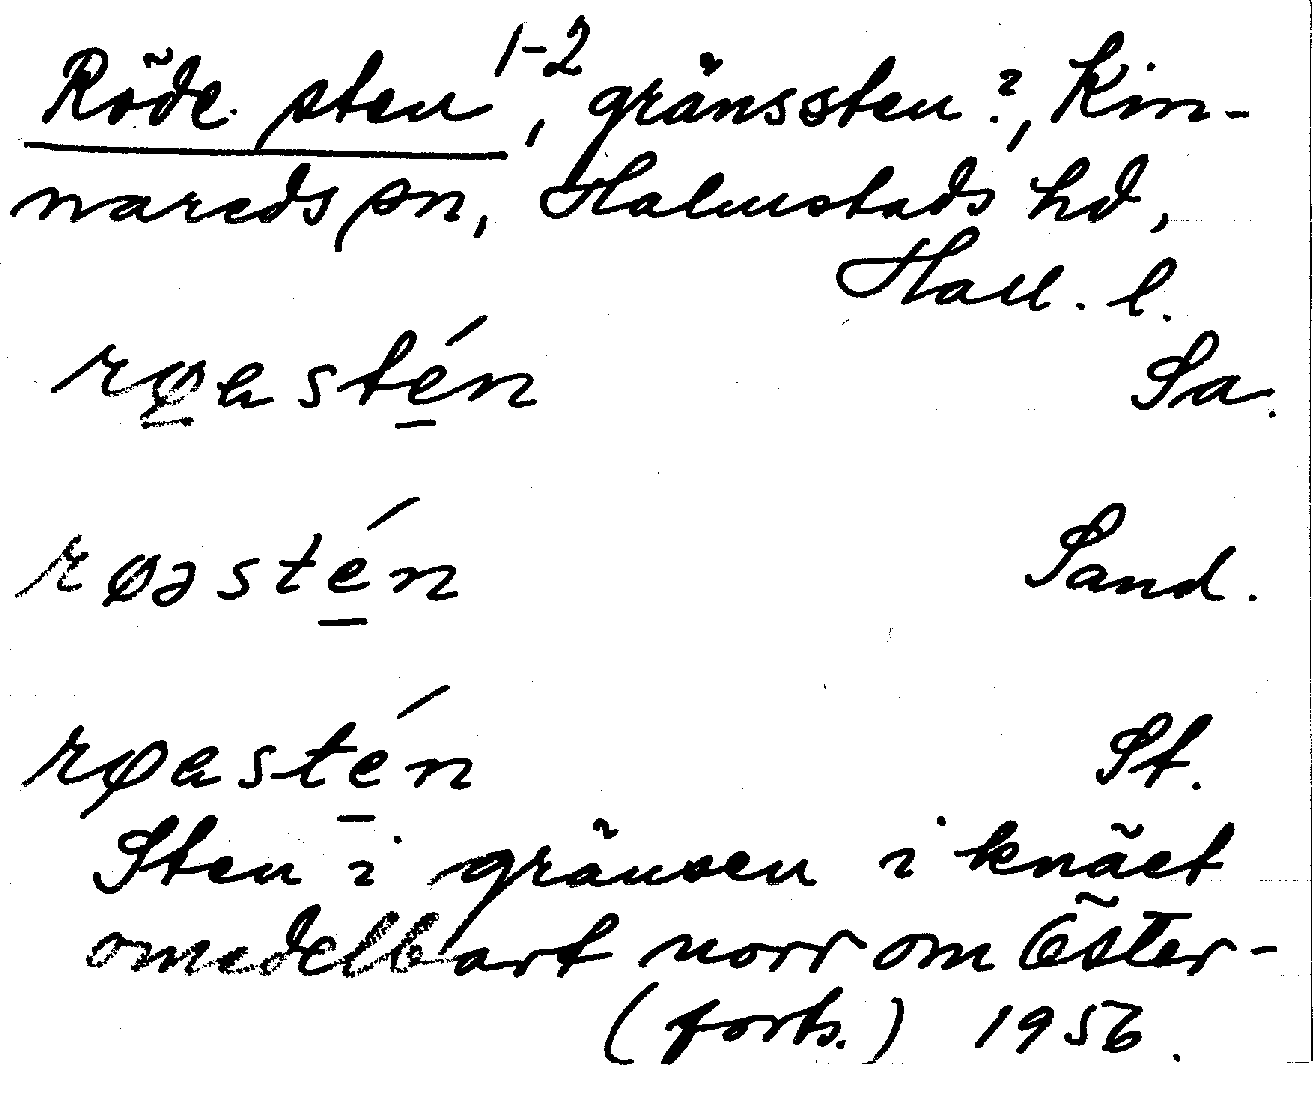 Röde sten 1-2, gränssten?, Kin-
nareds sn, Halmstads hd,
Hall. l.
rø̱asté̱n Sa.
røəsté̱n Sand.
røasté̱n St.
Sten i gränsen i knäet
omedelbart norr om Öster-
(forts.) 1956.